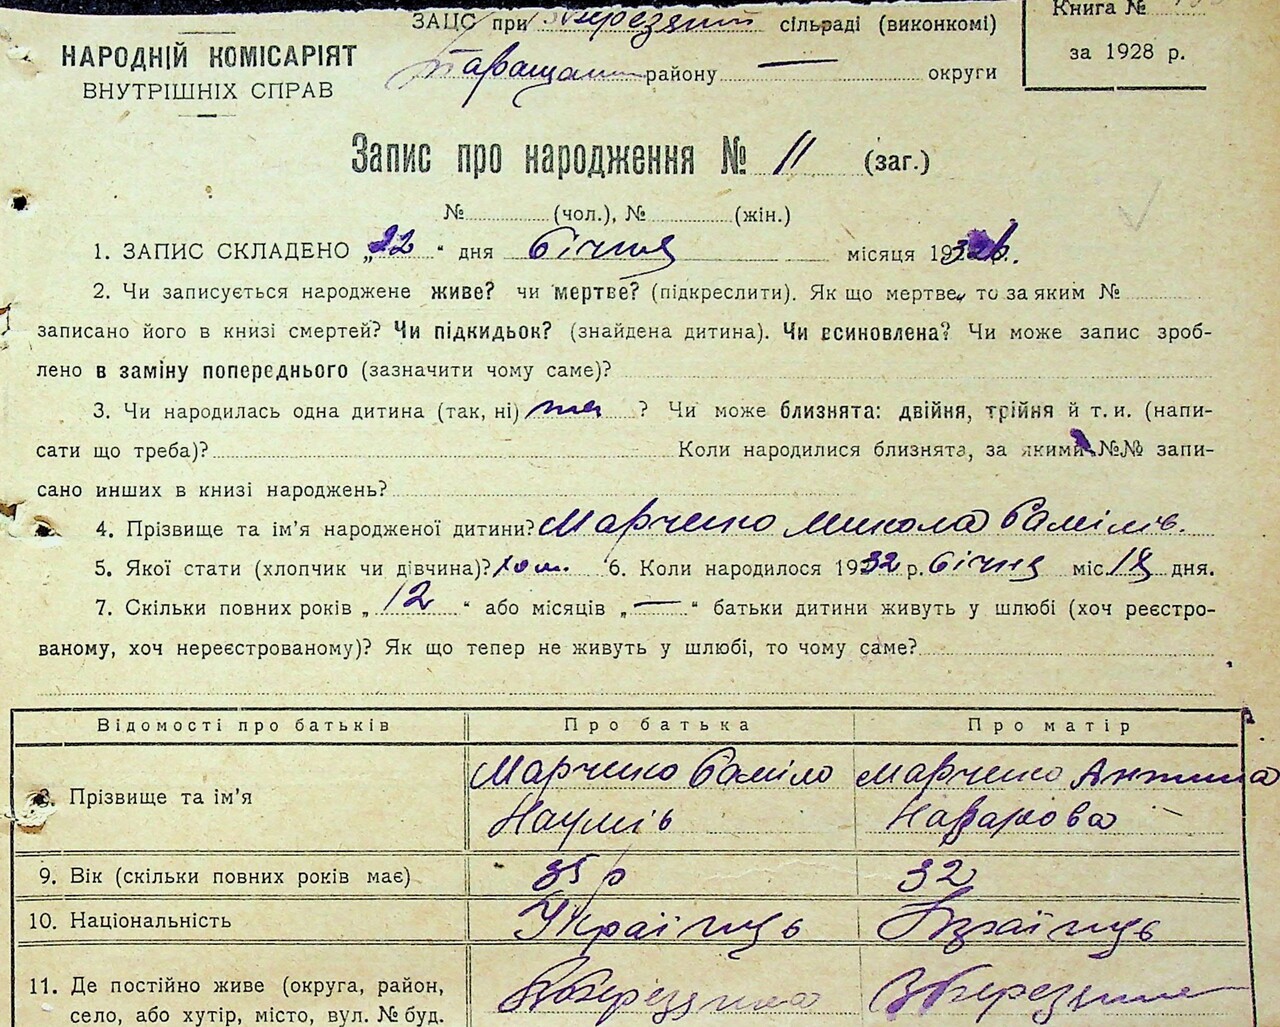 ЗАЦС при Збереззький сільраді (виконкомі)
Книга №
НАРОДНІЙ КОМІСАРІЯТ
ВНУТРІШНІХ СПРАВ
Таращан району — округи
за 1928 р.
Запис про народження № 11 (заг.)
№ (чол.), № (жін.)
1. ЗАПИС СКЛАДЕНО „22“ дня Січня місяця 1932 р.
2. Чи записується народжене живе? чи мертве? (підкреслити). Як що мертве, то за яким №
записано його в книзі смертей? Чи підкидьок? (знайдена дитина). Чи всиновлена? Чи може запис зроб-
лено в заміну попереднього (зазначити чому саме)?
3. Чи народилась одна дитина (так, ні) ? Чи може близнята: двійня, трійня й т. и. (напи-
сати що треба)? Коли народилися близнята, за якими №№ запи-
сано инших в книзі народжень?
4. Прізвище та ім’я народженої дитини? Марченко Микола Самілів.
5. Якої стати (хлопчик чи дівчина)? хлм. 6. Коли народилося 1932 р. Січня міс. 18 дня.
7. Скільки повних років „12“ або місяців „—“ батьки дитини живуть у шлюбі (хоч реєстро-
ваному, хоч нереєстрованому)? Як що тепер не живуть у шлюбі, то чому саме?
Відомості про батьків Про батька Про матір
Марченко Саміло Марченко Антина
8. Прізвище та ім’я
Наумів Назарова
9. Вік (скільки повних років має) 35 р 32
10. Національність Українць
11. Де постійно живе (округа, район,
село, або хутір, місто, вул. № буд.